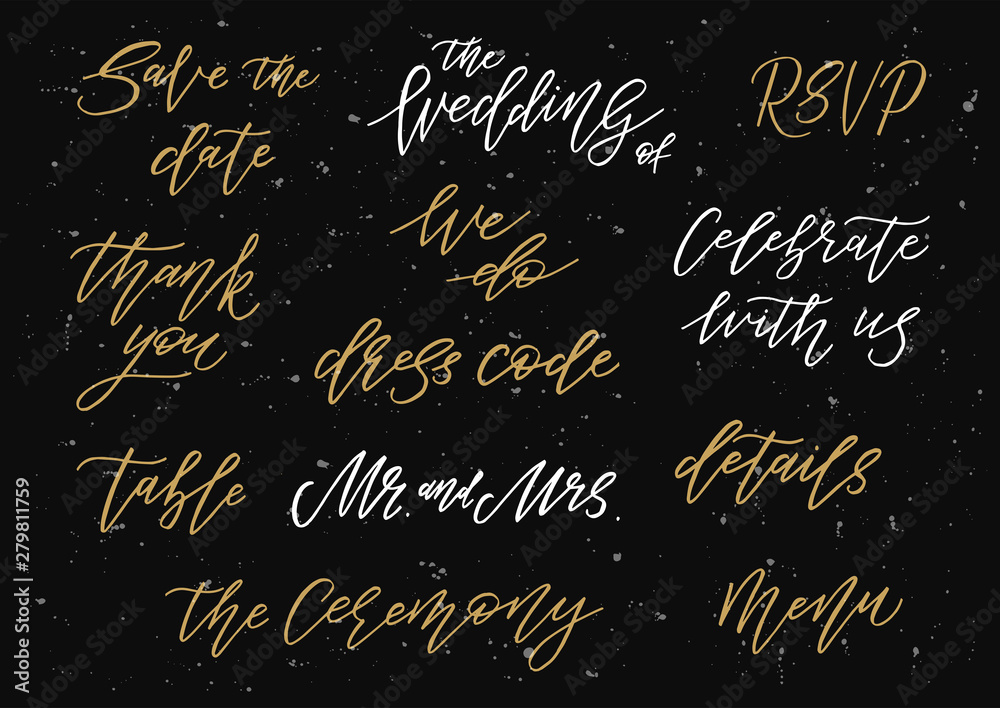 Save the
date
the
Wedding
of
RSVP
thank
you
We
do
Celebrate
with us
dress code
table
Mr. and Mrs.
details
the Ceremony
Menu
Adobe Stock | #279811759